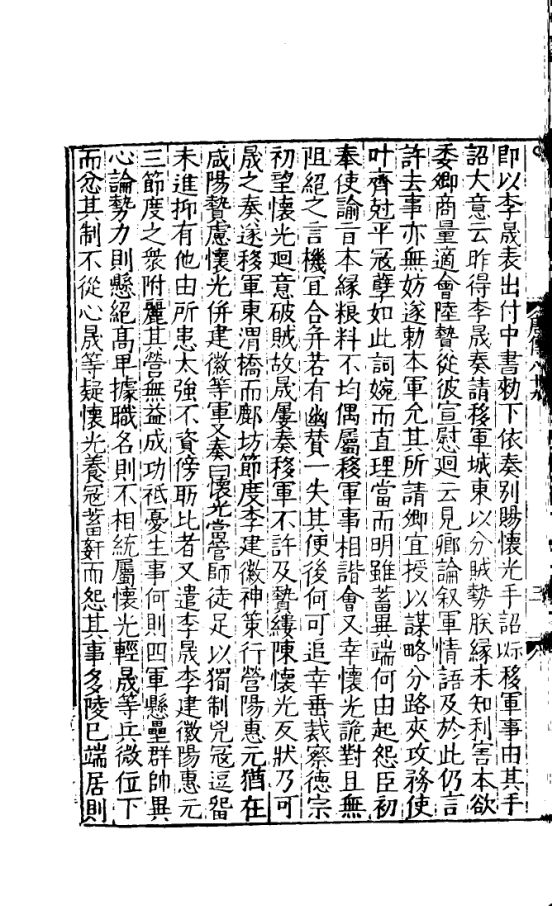 即以李晟表出付中書勑下依奏别賜懷光手詔以示移軍事由其手
詔大意云昨得李晟奏請移軍城東以分賊勢朕緣未知利害本欲
委卿商量適會陸贄從彼宣慰迴云見卿論叙軍情語及於此仍言
許去事亦無妨遂勑本軍允其所請卿宜授以謀略分路夾攻務使
叶齊尅平冦孽如此詞婉而直理當而明雖蓄異端何由起怨臣初
奉使諭旨本緣粮料不均偶屬移軍事相諧會又幸懷光詭對且無
阻絕之言機宜合幷若有幽贊一失其便後何可追幸垂裁察德宗
初望懷光迴意破賊故晟屢奏移軍不許及贄縷陳懷光反狀乃可
晟之奏遂移軍東渭橋而鄜坊節度李建徽神策行營陽惠元猶在
咸陽贄慮懷光併建徽等軍又奏曰懷光當營師徒足以獨制兇冦逗留
未進抑有他由所患太強不資傍助比者又遣李晟李建徽陽惠元
三節度之衆附麗其營無益成功祗憂生事何則四軍懸壘群帥異
心論勢力則懸絕高卑據職名則不相統屬懷光輕晟等兵微位下
而忿其制不從心晟等疑懷光養冦蓄姧而怨其事多陵已端居則
唐傳八十九
三